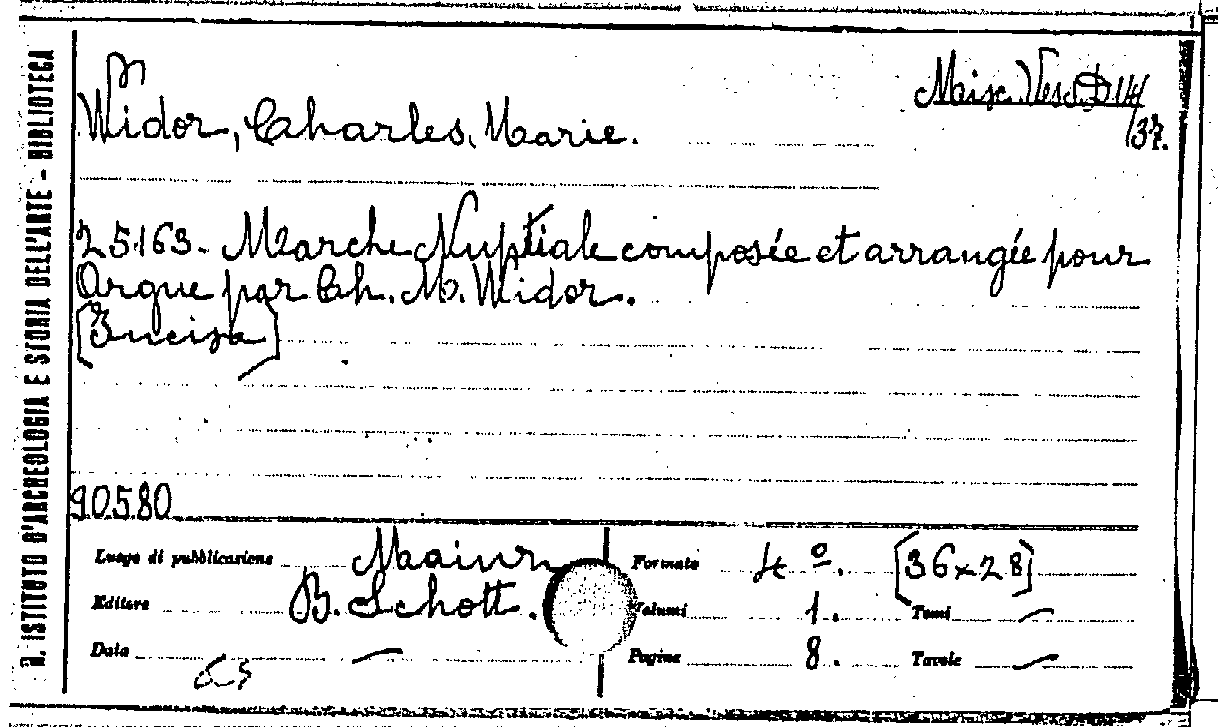 R. ISTITUTO D'ARCHEOLOGIA E STORIA DELL'ARTE - BIBLIOTECA
Misc. Vess. D 14/
37.
Widor, Charles, Marie.
25163- Marche Nuptiale composée et arrangée pour
Orgue par Ch. M. Widor.
[Incisa]
90580
Luogo di pubblicazione Mainz
Editore B. Schott.
Data —
Formato 4º. [36x28]
Volumi 1. Tomi —
Pagine 8. Tavole —